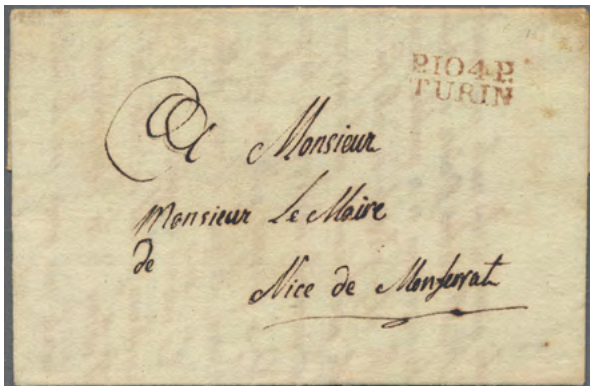 P.104.P.
TURIN
A Monsieur
Monsieur Le Maire
de
Nice de Monferrat